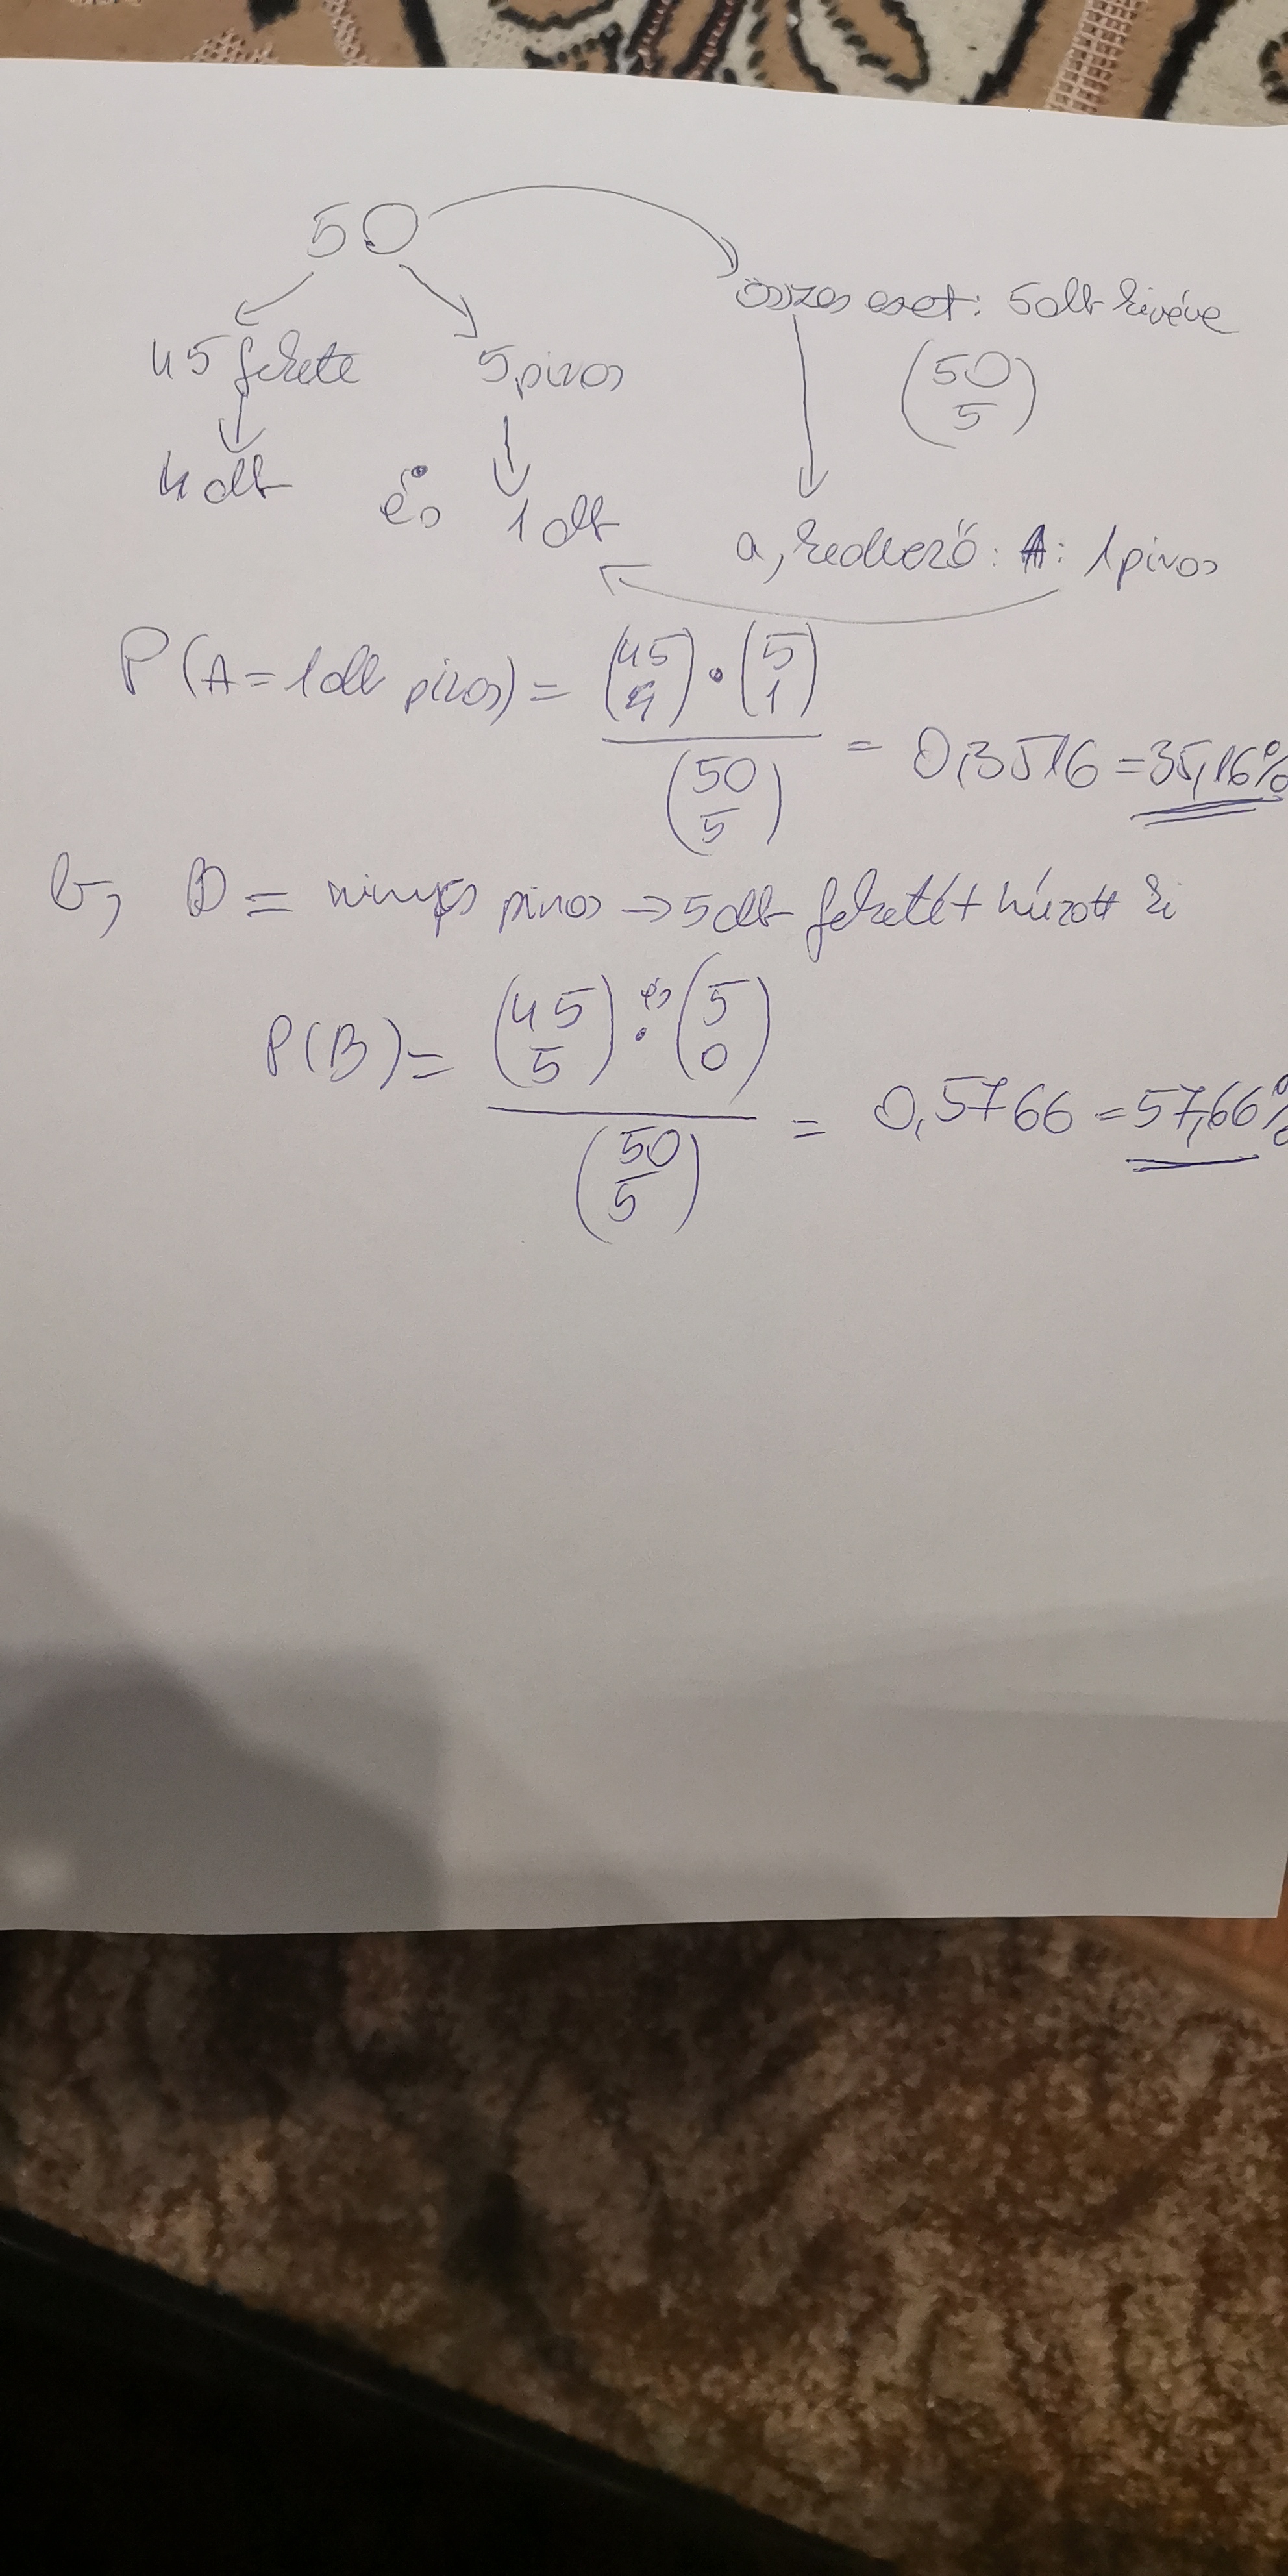 50
összes eset: 5db kivéve
45 fekete 5 piros
(50
5)
4 db és 1 db
a, kedvező: A: 1 piros
P(A = 1 db piros) = (45
4) · (5
1)
(50
5)
= 0,3516 = 35,16%
b, B = nincs piros → 5 db feketét húzott ki
P(B) = (45
5) és · (5
0)
(50
5)
= 0,5766 = 57,66%